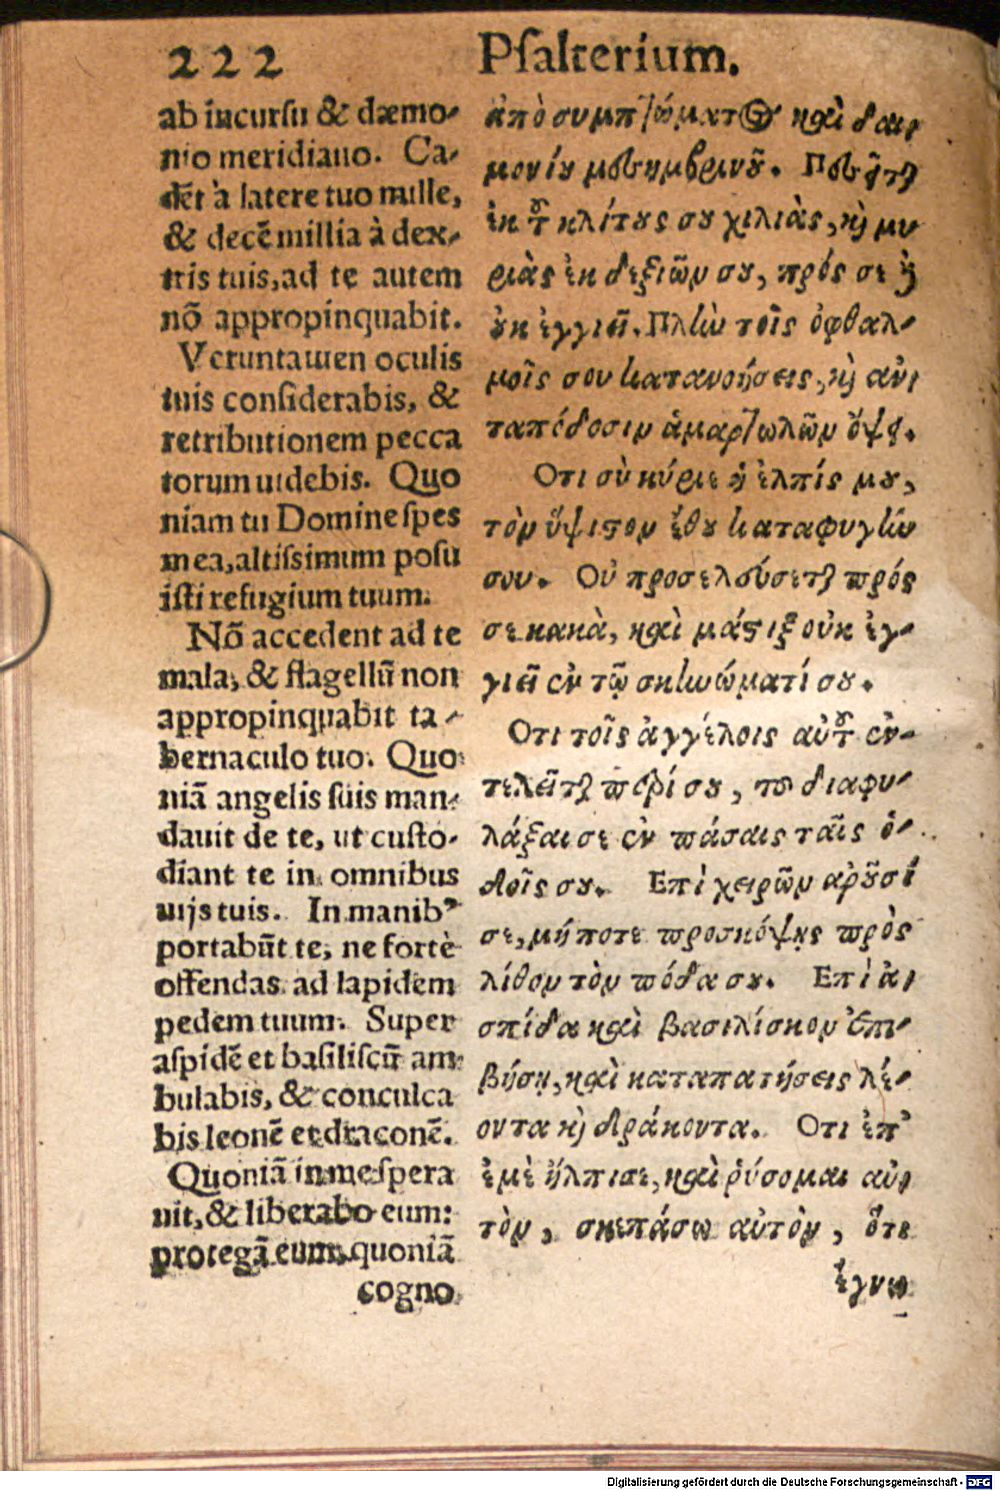 222 Psalterium.
ab incursu & dæmo-
nio meridiano. Ca-
dēt à latere tuo mille,
& decē millia à dex-
tris tuis, ad te autem
nō appropinquabit.
Veruntamen oculis
tuis considerabis, &
retributionem pecca
torum uidebis. Quo
niam tu Domine spes
mea, altissimum posu
isti refugium tuum.
Nō accedent ad te
mala, & flagellū non
appropinquabit ta-
bernaculo tuo. Quo
niā angelis suis man-
dauit de te, ut custo-
diant te in omnibus
uijs tuis. In manibꝰ
portabūt te, ne fortè
offendas ad lapidem
pedem tuum. Super
aspidē et basiliscū am-
bulabis, & conculca
bis leonē et draconē.
Quoniā in me spera
uit, & liberabo eum:
protegā eum, quoniā
cogno
ἀπὸ συμπτώματος καὶ δαι-
μονίου μεσημβρινοῦ. Πεσεῖται
ἐκ τοῦ κλίτους σου χιλιὰς, καὶ μυ
ριὰς ἐκ δεξιῶν σου, πρός σε δὲ
οὐκ ἐγγιεῖ. Πλὴν τοῖς ὀφθαλ-
μοῖς σου κατανοήσεις, καὶ ἀν-
ταπόδοσιν ἁμαρτωλῶν ὄψει.
Οτι σὺ κύριε ἡ ἐλπίς μου,
τὸν ὕψιστον ἔθου καταφυγὴν
σου. Οὐ προσελεύσεται πρός
σε κακὰ, καὶ μάστιξ οὐκ ἐγ-
γιεῖ ἐν τῷ σκηνώματί σου.
Οτι τοῖς ἀγγέλοις αὐτοῦ ἐν-
τελεῖται περί σου, τοῦ διαφυ-
λάξαι σε ἐν πάσαις ταῖς ὁ-
δοῖς σου. Επὶ χειρῶν αροῦσί
σε, μήποτε προσκόψῃς πρὸς
λίθον τὸν πόδα σου. Επὶ ἀ-
σπίδα καὶ βασιλίσκον ἐπι-
βήσῃ, καὶ καταπατήσεις λέ-
οντα καὶ δράκοντα. Οτι ἐπ'
ἐμὲ ἤλπισε, καὶ ῥύσομαι αὐ-
τὸν, σκεπάσω αὐτὸν, ὅτι
ἔγνω
Digitalisierung gefördert durch die Deutsche Forschungsgemeinschaft - DFG